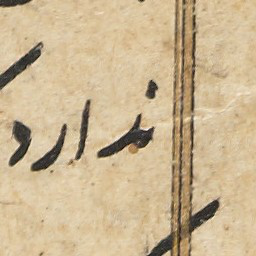 ندارد